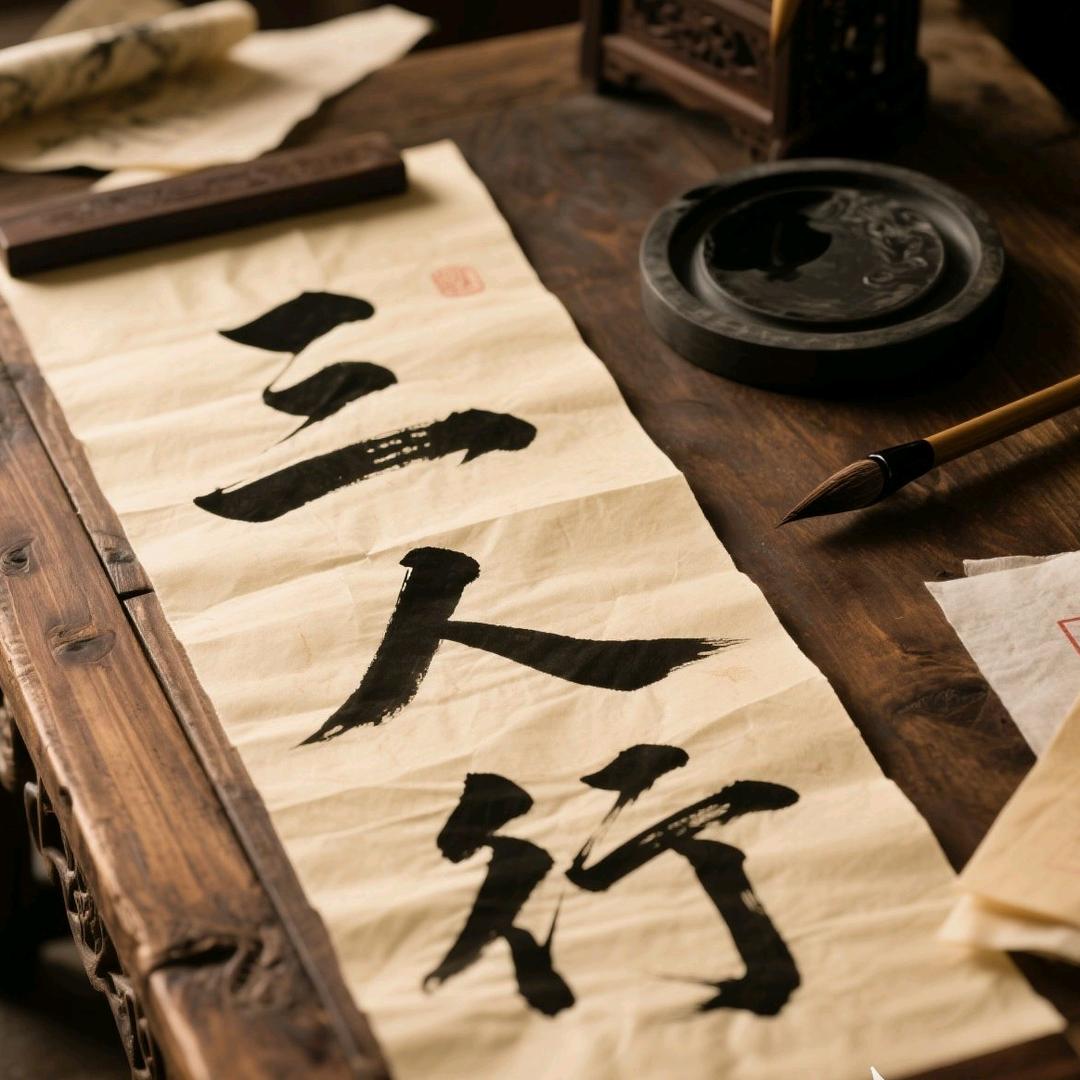 三人行